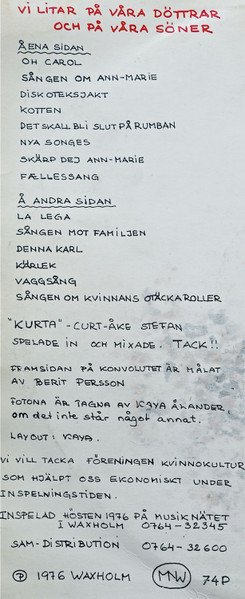 VI LITAR PÅ VÅRA DÖTTRAR
OCH PÅ VÅRA SÖNER
ÅENA SIDAN
OH CAROL
SÅNGEN OM ANN-MARIE
DISKOTEKSJAKT
KOTTEN
DET SKALL BLI SLUT PÅ RUMBAN
NYA SONGES
SKÄRP DEJ ANN-MARIE
FÆLLESSANG
Å ANDRA SIDAN
LA LEGA
SÅNGEN MOT FAMILJEN
DENNA KARL
KÄRLEK
VAGGSÅNG
SÅNGEN OM KVINNANS OTÄCKA ROLLER
"KURTA" - CURT-ÅKE STEFAN
SPELADE IN OCH MIXADE. TACK!!
FRAMSIDAN PÅ KONVOLUTET ÄR MÅLAT
AV BERIT PERSSON
FOTONA ÄR TAGNA AV KAYA ÅLANDER
OM DET INTE STÅR NÅGOT ANNAT.
LAYOUT: KAYA.
VI VILL TACKA FÖRENINGEN KVINNOKULTUR
SOM HJÄLPT OSS EKONOMISKT UNDER
INSPELNINGSTIDEN.
INSPELAD HÖSTEN 1976 PÅ MUSIKNÄTET
I WAXHOLM 0764-32345
SAM-DISTRIBUTION 0764-32600
Ⓟ 1976 WAXHOLM MNW 74P